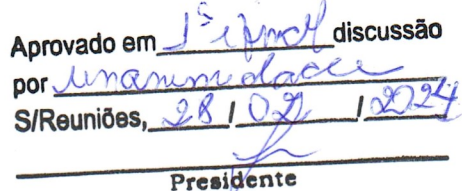 Aprovado em 1ª e final discussão
por unanimidade
S/Reuniões, 28 / 02 / 2024
Presidente